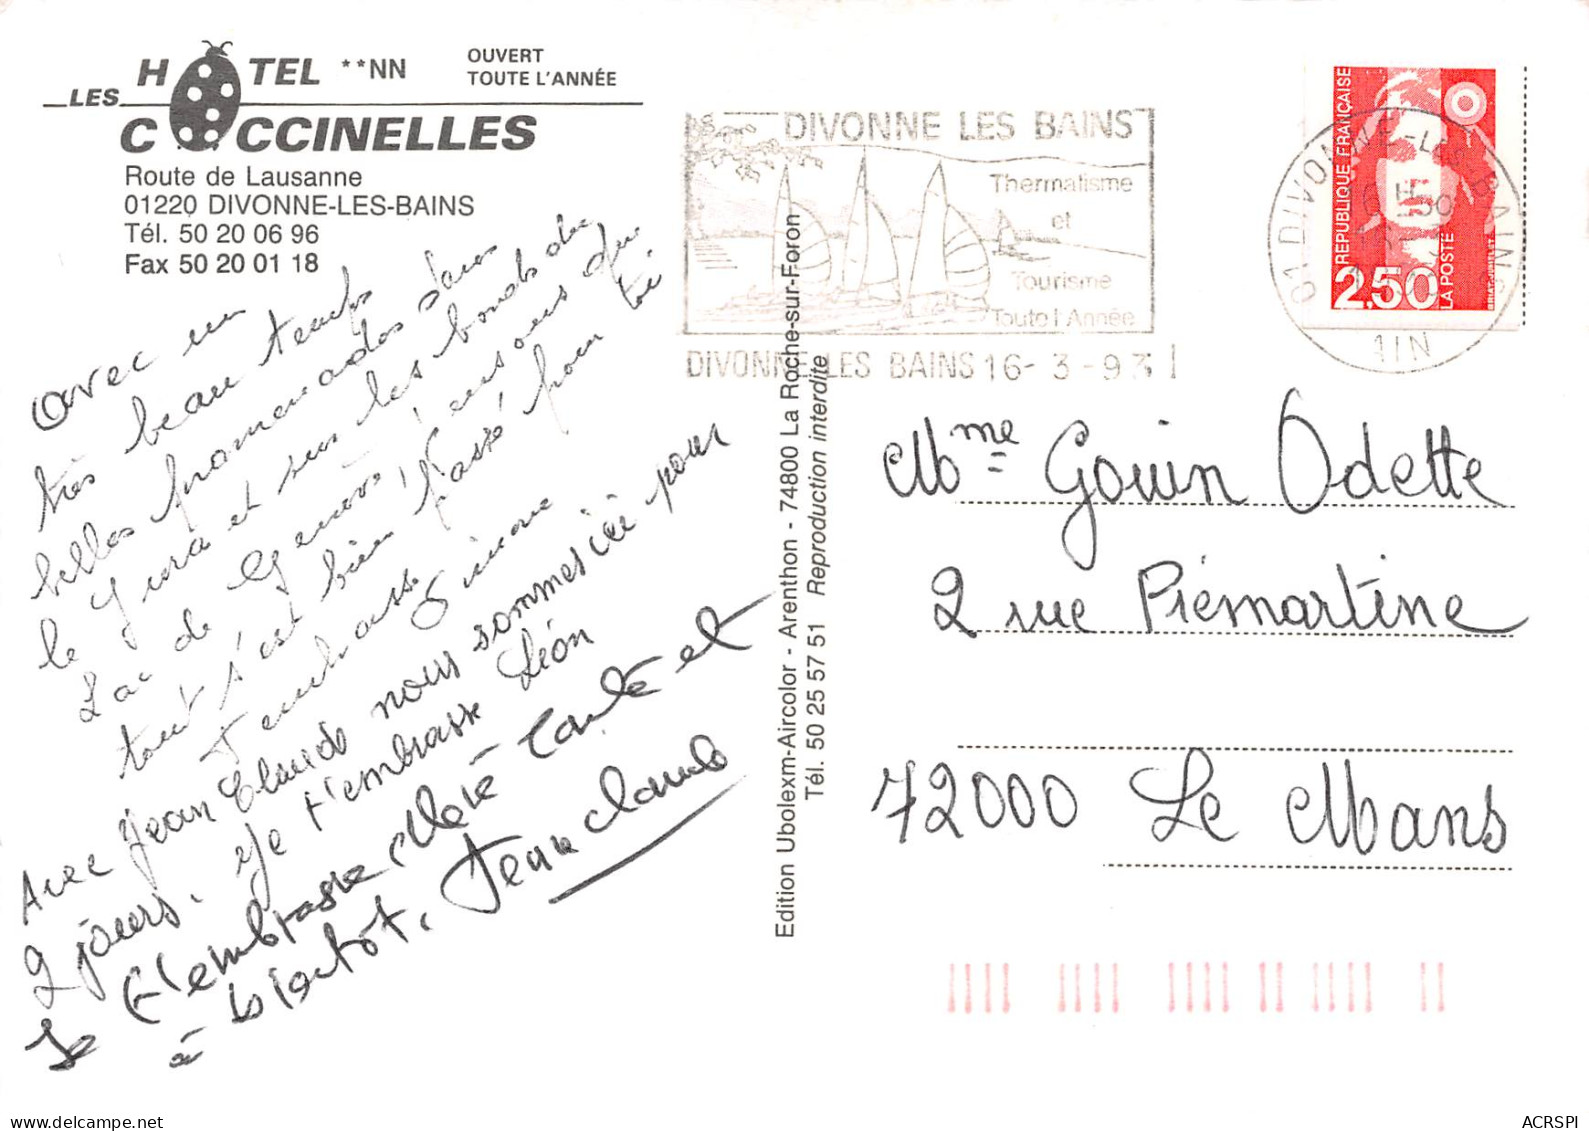 LES HÔTEL **NN
COCCINELLES
OUVERT
TOUTE L'ANNÉE
Route de Lausanne
01220 DIVONNE-LES-BAINS
Tél. 50 20 06 96
Fax 50 20 01 18
Avec un
très beau temps
belles promenades dans
le Jura et sur les bords du
Lac de Genève, l'ensemble du
tout s'est bien passé pour toi
J'embrasse Simone
Avec Jean Claude nous sommes ici pour
2 jours. Je t'embrasse Léon
Je t'embrasse Mémé Tante et
à bientôt. Jean Claude
Edition Ubolexm-Aircolor - Arenthon - 74800 La Roche-sur-Foron
Tél. 50 25 57 51 Reproduction interdite
DIVONNE LES BAINS
Thermalisme
et
Tourisme
Toute l'Année
DIVONNE LES BAINS 16-3-93
RÉPUBLIQUE FRANÇAISE
2,50
LA POSTE
BRIAT-JUMELET
01 DIVONNE-Les-BAINS
AIN
Mme Gouin Odette
2 rue Piémartine
72000 Le Mans
ACRSPI